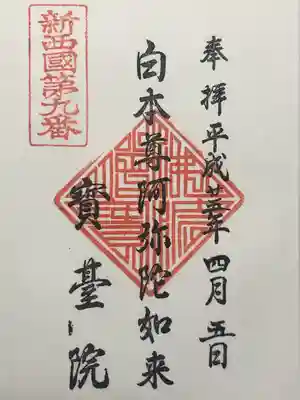 奉拝 平成廿五年 四月五日
白本尊阿弥陀如来
寶臺院
新西國第九番